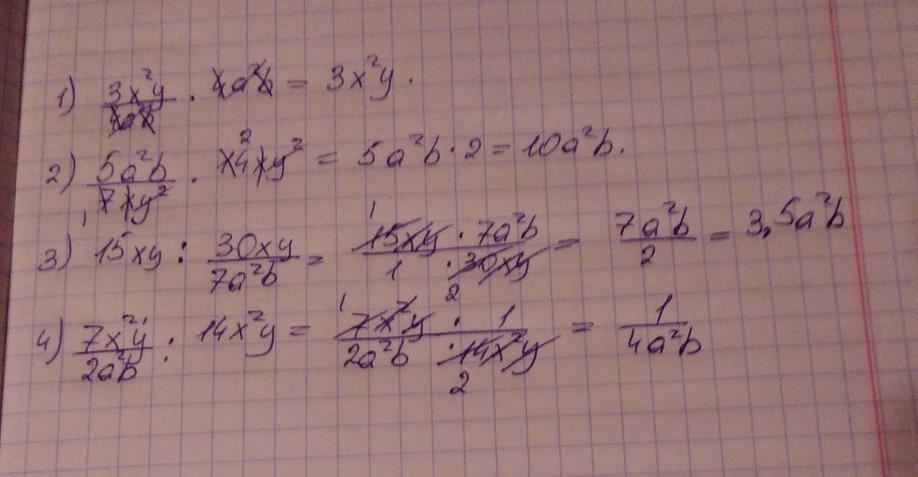 1) 3x²y/4a²b · 4a²b = 3x²y.
2) 5a²b/7xy² · 14xy² = 5a²b · 2 = 10a²b.
3) 15xy : 30xy/7a²b = 15xy · 7a²b/1 · 30xy = 7a²b/2 = 3,5a²b
4) 7x²y/2a²b : 14x²y = 7x²y · 1/2a²b · 14x²y = 1/4a²b